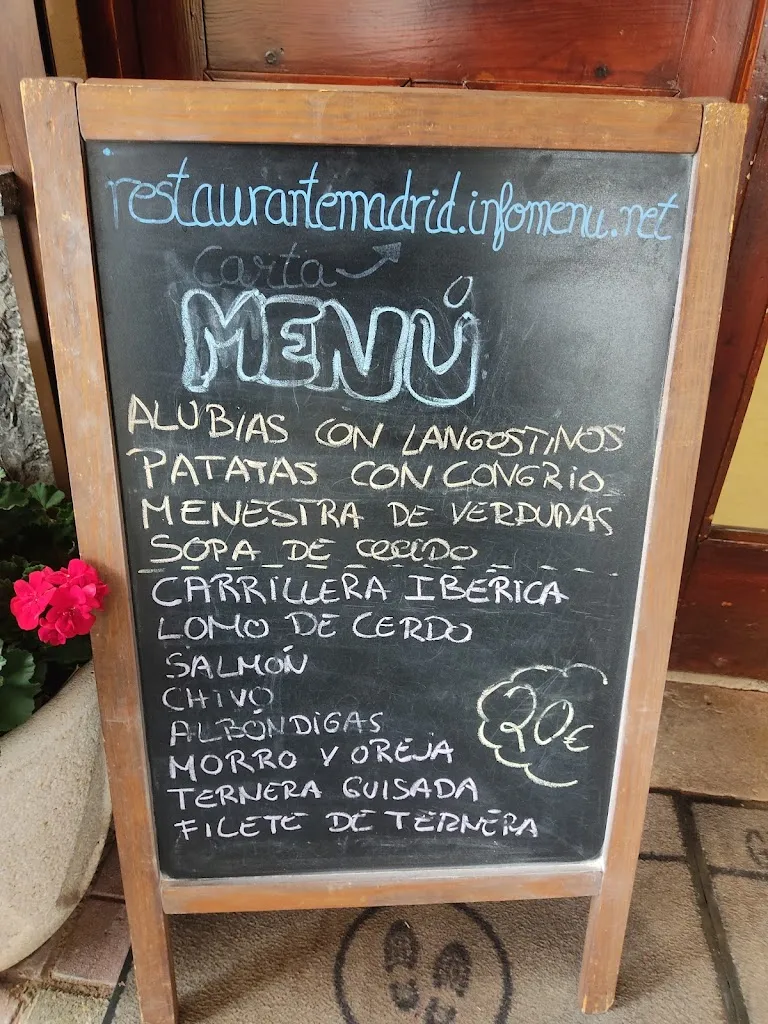 restaurantemadrid.infomenu.net
Carta
MENÚ
ALUBIAS CON LANGOSTINOS
PATATAS CON CONGRIO
MENESTRA DE VERDURAS
SOPA DE COCIDO
CARRILLERA IBERICA
LOMO DE CERDO
SALMÓN
CHIVO
ALBÓNDIGAS
MORRO Y OREJA
TERNERA GUISADA
FILETE DE TERNERA
20€